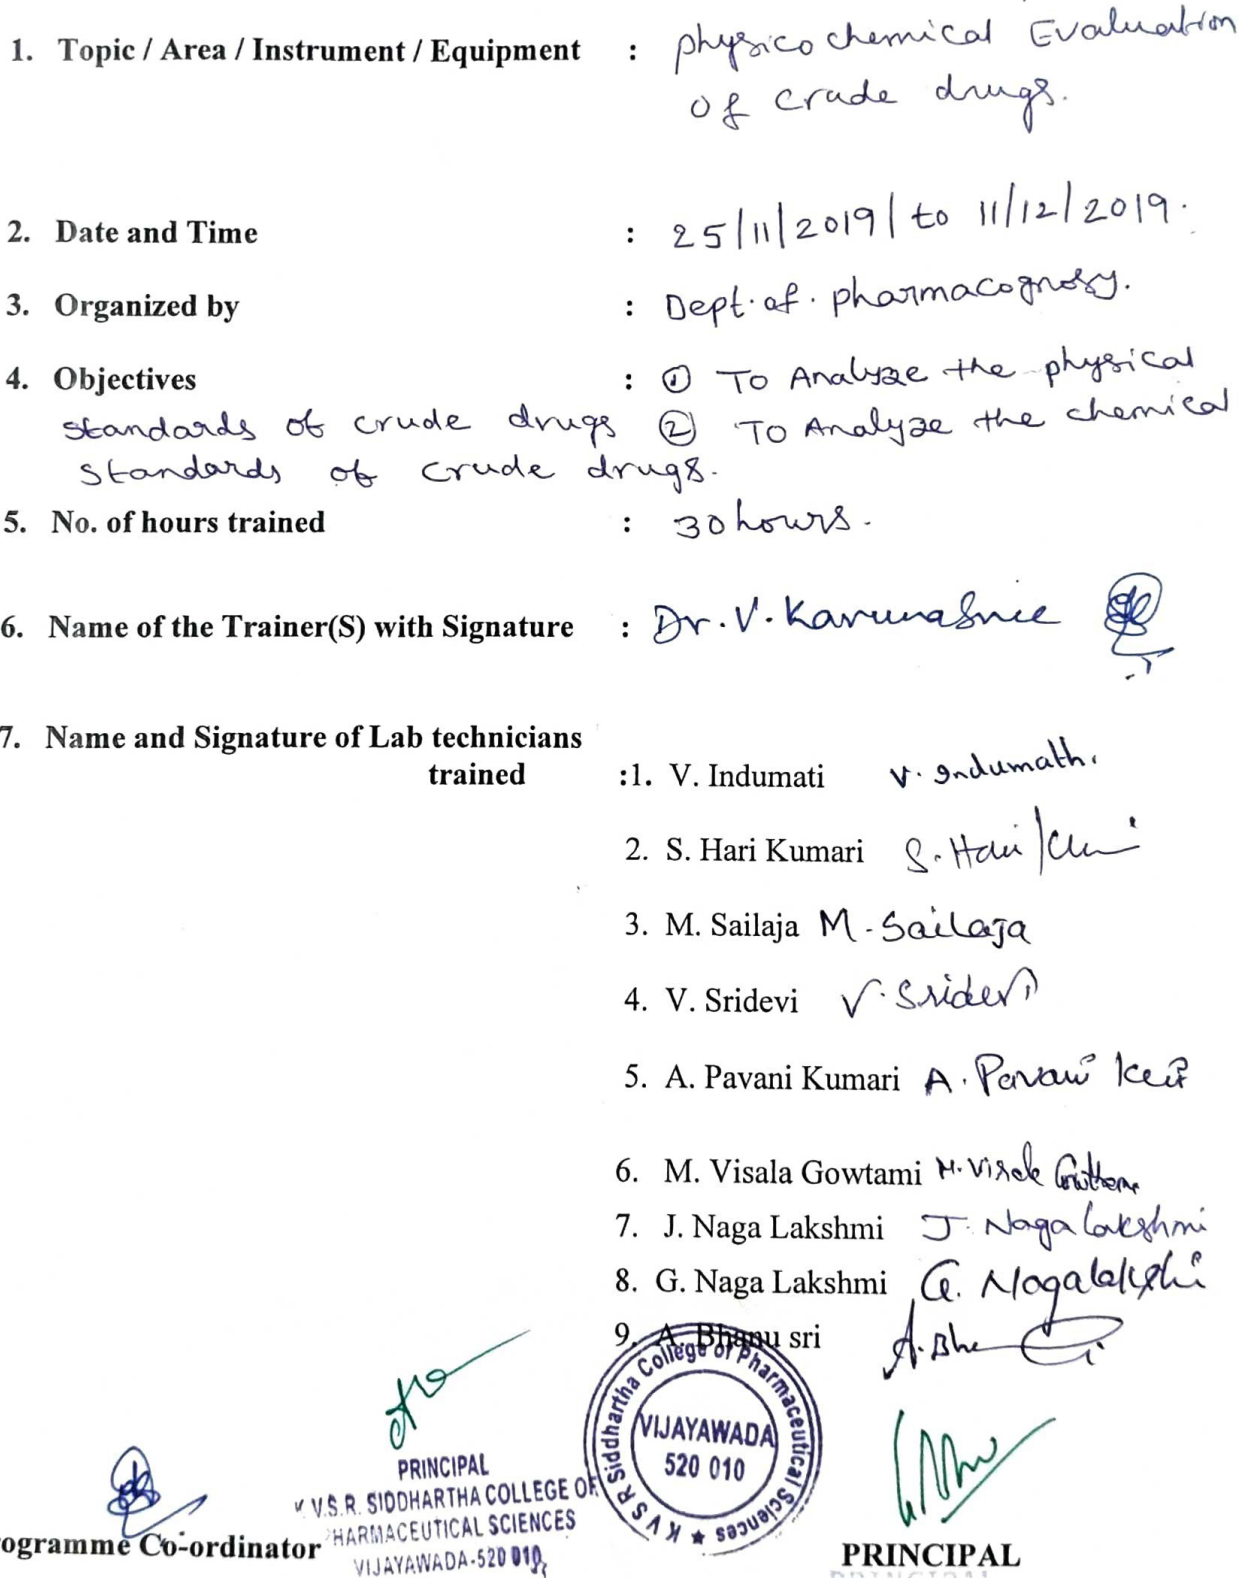 1. Topic / Area / Instrument / Equipment : physico chemical Evaluation
of crude drugs.
2. Date and Time : 25/11/2019/ to 11/12/2019.
3. Organized by : Dept. of. pharmacognosy.
4. Objectives : ① To Analyze the physical
standards of crude drugs ② To Analyze the chemical
standards of crude drugs.
5. No. of hours trained : 30 hours.
6. Name of the Trainer(S) with Signature : Dr. V. Karunasree
7. Name and Signature of Lab technicians
trained :1. V. Indumati V. Indumathi
2. S. Hari Kumari S. Hari
3. M. Sailaja M. Sailaja
4. V. Sridevi V. Sridevi
5. A. Pavani Kumari A. Pavani
6. M. Visala Gowtami M. Visala
7. J. Naga Lakshmi J. Naga Lakshmi
8. G. Naga Lakshmi G. Nagalakshmi
9. A. Bhanu sri
K V S R Siddhartha College of Pharmaceutical Sciences ★
VIJAYAWADA
520 010
PRINCIPAL
K V.S.R. SIDDHARTHA COLLEGE OF
PHARMACEUTICAL SCIENCES
VIJAYAWADA-520 010,
ogramme Co-ordinator
PRINCIPAL
PRINCIPAL